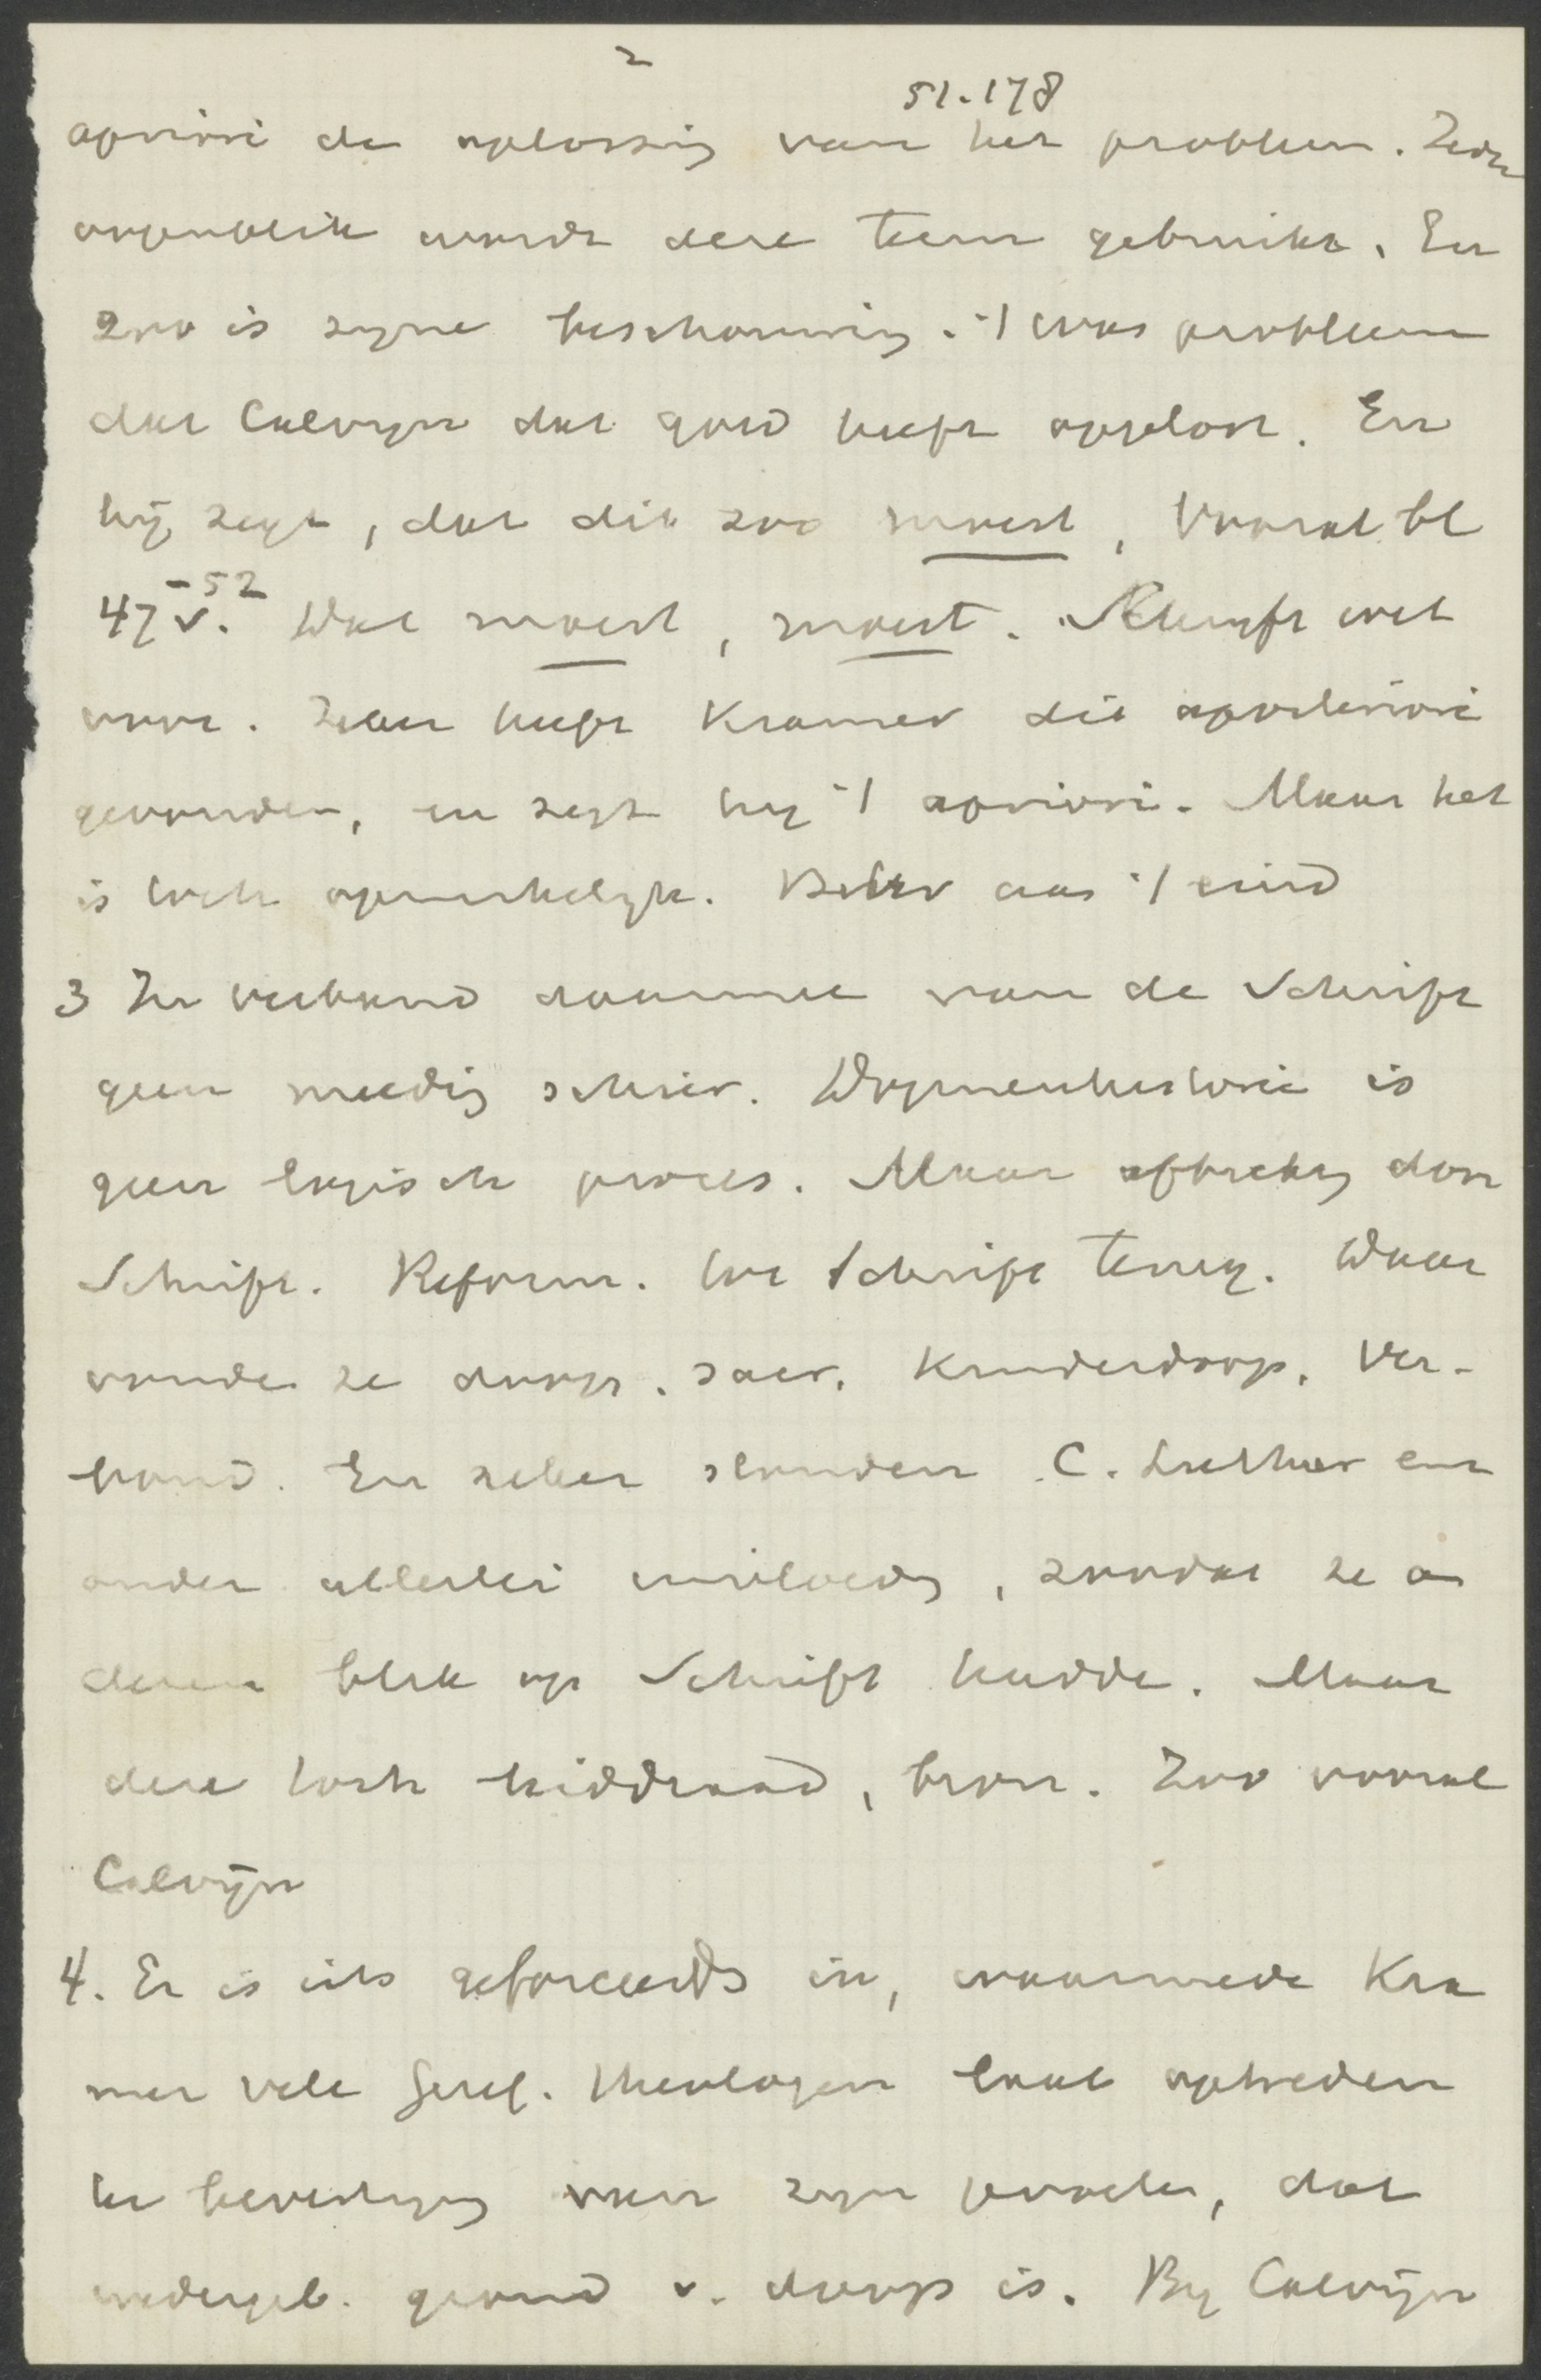 2
51.178
apriori de oplossing van het probleem. Ieder
oogenblik wordt deze term gebruikt. En
zoo is zijne beschouwing. 't was probleem
dat Calvijn dat goed heeft opgelost. En
hij zegt, dat dit zoo moest, vooral bl
47 v. -52 Wat moest, moest. Schrijft wet
voor. Zeker heeft Kramer dit aposteriori
gevonden, en zegt hij 't apriori. Maar het
is toch opmerkelijk. Beter aas 't eind
3 In verband daarmee van de Schrift
geen melding schier. Dogmenhistorie is
geen logisch proces. Maar afbreking door
Schrift. Reform. tot Schrift terug. Waar
vonde ze doops. sacr. Kinderdoop. Ver-
bond. En zeker stonden C. Luther enz
onder allerlei invloeden, zoodat ze on
deren blik op Schrift hadde. Maar
deze toch leiddraad, bron. Zoo vooral
Calvijn
4. Er is iets geforceerds in, waarmede Kra
mer vele Geref. theologen laat optreden
ter bevestiging van zijn oordeel, dat
wedergeb. grond v. doop is. Bij Calvijn